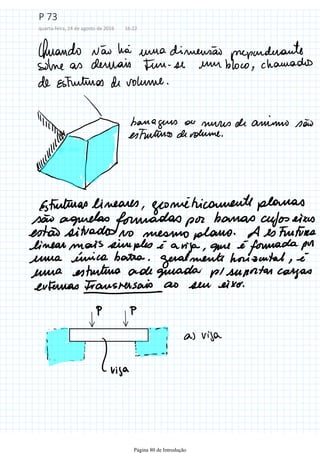 P 73
quarta-feira, 24 de agosto de 2016 16:22
Quando não há uma dimensão preponderante
sobre as demais tem-se um bloco, chamado
de estrutura de volume.
barragens ou muros de arrimo são
estruturas de volume.
Estruturas lineares, geometricamente planas
são aquelas formadas por barras cujos eixos
estão situados no mesmo plano. A estrutura
linear mais simples é a viga, que é formada por
uma única barra. geralmente horizontal, é
uma estrutura adequada p/ suportar cargas
externas transversais ao seu eixo.
P P
a) viga
viga
Página 80 de Introdução